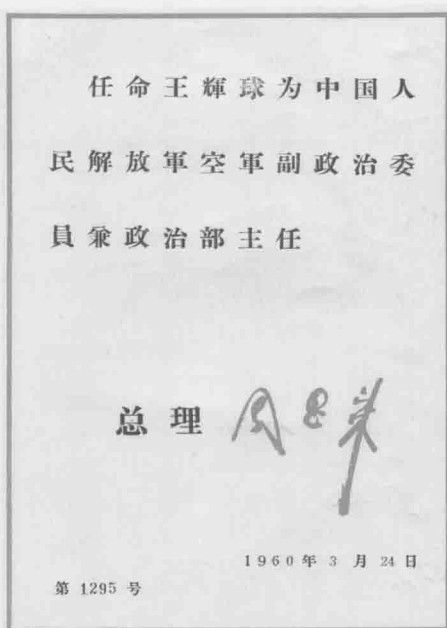 任命王輝球为中国人
民解放軍空軍副政治委
員兼政治部主任
总理 周恩来
1960年3月24日
第1295号